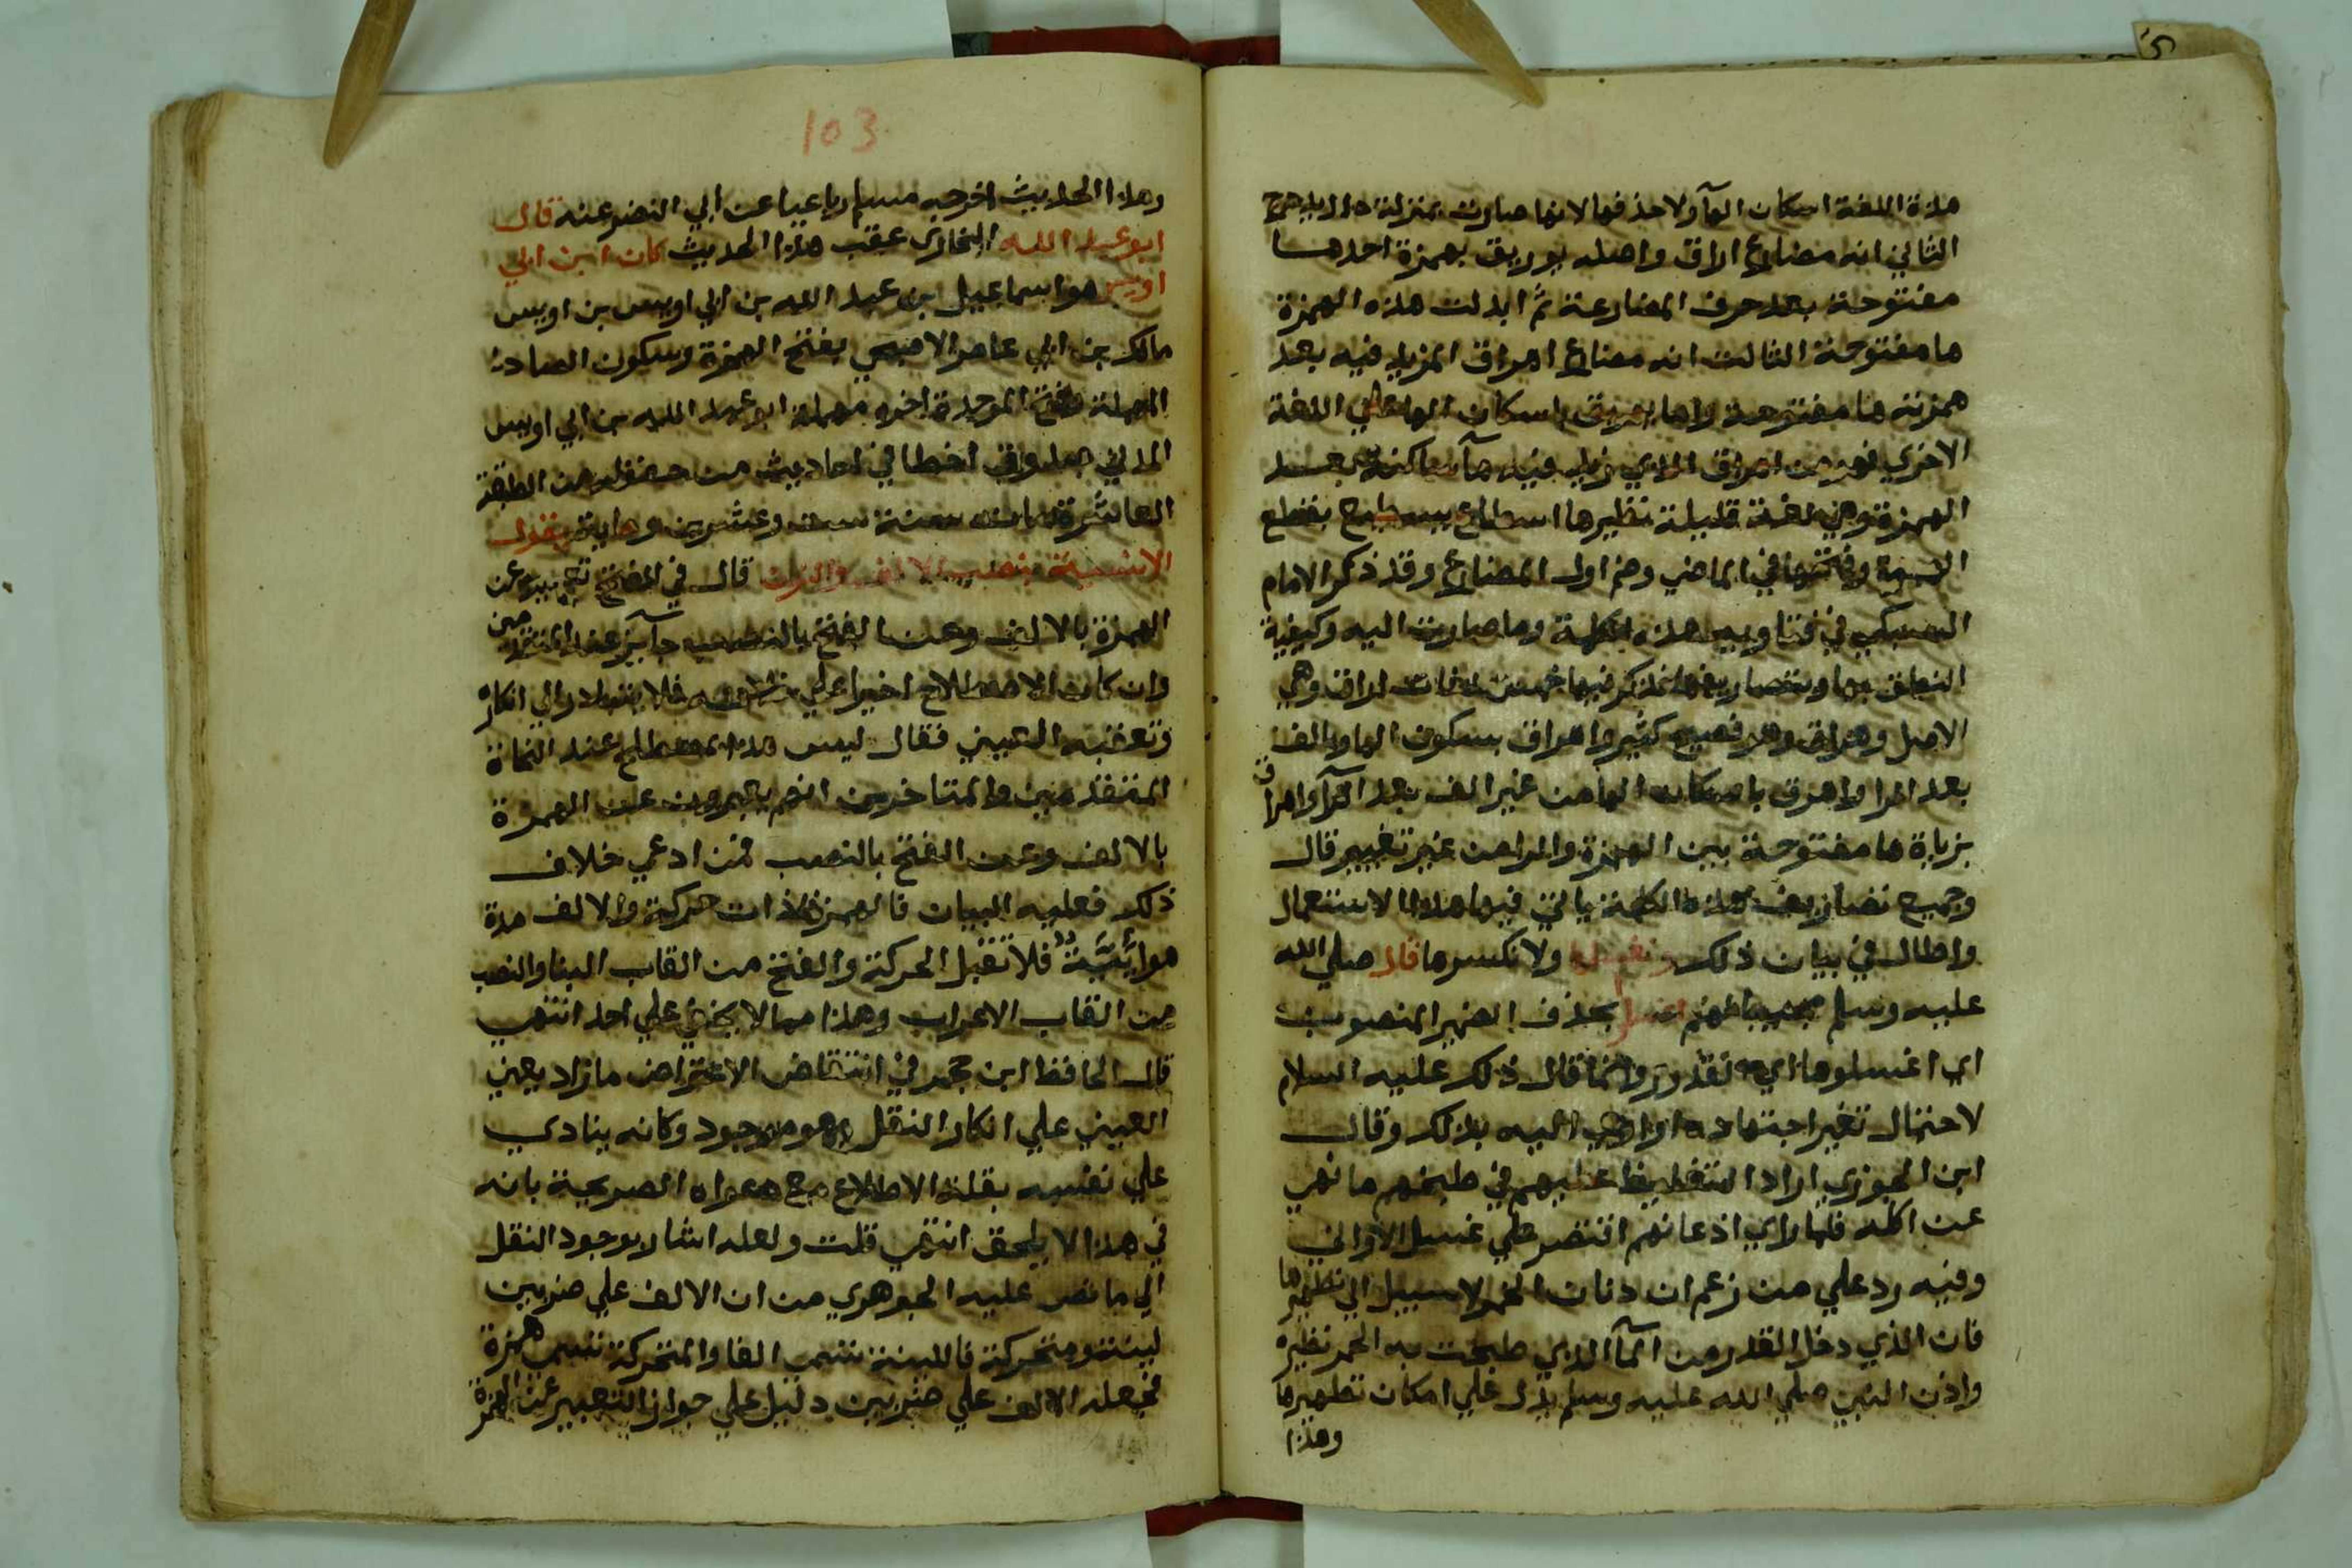 هذه اللغة اسكان الهآ ولا حذفها لانها صارت بمنزلة دال يدحرج
الثاني انه مضارع اراق واصله يوريق بهمزة احدهما
مفتوحة بعد حرف المضارعة ثم ابدلت هذه الهمزة
ها مفتوحة الثالث انه مضارع اهراق المزيد فيه بعد
همزته ها مفتوحة واما يهريق باسكان الها علي اللغة
الاخري فهو من اهراق الذي زيد فيه هآ ساكنة بعد
الهمزة وهي لغة قليلة نظيرها اسطاع يسطيع بقطع
الهمزة وفتحها في الماضي وضم اول المضارع وقد ذكر الامام
السبكي في فتاويه هذه الكلمة وما صارت اليه وكيفية
النطق بها وتصاريفها فذكر فيها خمس لغات اراق وهي
الاصل وهراق وهو فصيح كثير واهراق بسكون الها والف
بعد الرا واهرق باسكان الها من غير الف بعد الرآ واهراق
بزيادة ها مفتوحة بين الهمزة والرا من غير تغيير قال
وجميع تصاريف هذه الكلمة ياتي فيها هذا الاستعمال
واطال في بيان ذلك ونغسلها ولا نكسرها قال صلي الله
عليه وسلم مجيبا لهم اغسلوا بحذف الضمير المنصوب
اي اغسلوها اي القدور وانما قال ذلك عليه السلام
لاحتمال تغير اجتهاده او اوحي اليه بذلك وقال
ابن الجوزي اراد التغليظ عليهم في طبخهم ما نهي
عن اكله فلما راي اذعانهم اقتصر علي غسل الاواني
وفيه رد علي من زعم ان دنان الخمر لا سبيل الي تطهيرها
فان الذي دخل القدر من المآ الذي طبخت به الحمر نظيره
واذن النبي صلي الله عليه وسلم يدل علي امكان تطهيرها
وهذا
103
وهذا الحديث اخرجه مسلم رباعيا عن ابي النضر عنه قال
ابو عبد الله البخاري عقب هذا الحديث كان ابن ابي
اويس هو اسماعيل بن عبد الله بن ابي اويس بن اويس
مالك بن ابي عامر الاصبحي بفتح الهمزة وسكون الصاد
المهملة وفتح الموحدة اخره مهملة ابو عبد الله بن ابي اويس
المدني صدوق اخطا في احاديث من حفظه من الطبقة
العاشرة مات سنة ست وعشرين وماية يقول
الانسية بنصب الالف والنون قال في الفتح تعبيره عن
الهمزة بالالف وعن الفتح بالنصب جآئز عند المتقدمين
وان كان الاصطلاح اخيرا علي خلافه فلا يتبادر الي انكاره
وتعقبه العيني فقال ليس هذا بمصطلح عند النحاة
المتقدمين والمتاخرين انهم يعبرون عن الهمزة
بالالف وعن الفتح بالنصب فمن ادعي خلاف
ذلك فعليه البيان فالهمزة ذات حركة والالف مدة
هوائية فلا تقبل الحركة والفتح من القاب البنا والنصب
من القاب الاعراب وهذا مما لا يخفي علي احد انتهي
قال الحافظ ابن حجر في انتقاض الاعتراض ما زاد يعني
العيني علي انكار النقل وهو موجود وكانه ينادي
علي نفسه بقلة الاطلاع مع دعواه الصريحة بانه
في هذا لا يلحق انتهي قلت ولعله اشار بوجود النقل
الي ما نص عليه الجوهري من ان الالف علي ضربين
لينة ومتحركة فاللينة تسمي الفا والمتحركة تسمي همزة
فجعله الالف علي ضربين دليل علي جواز التعبير عن الهمزة